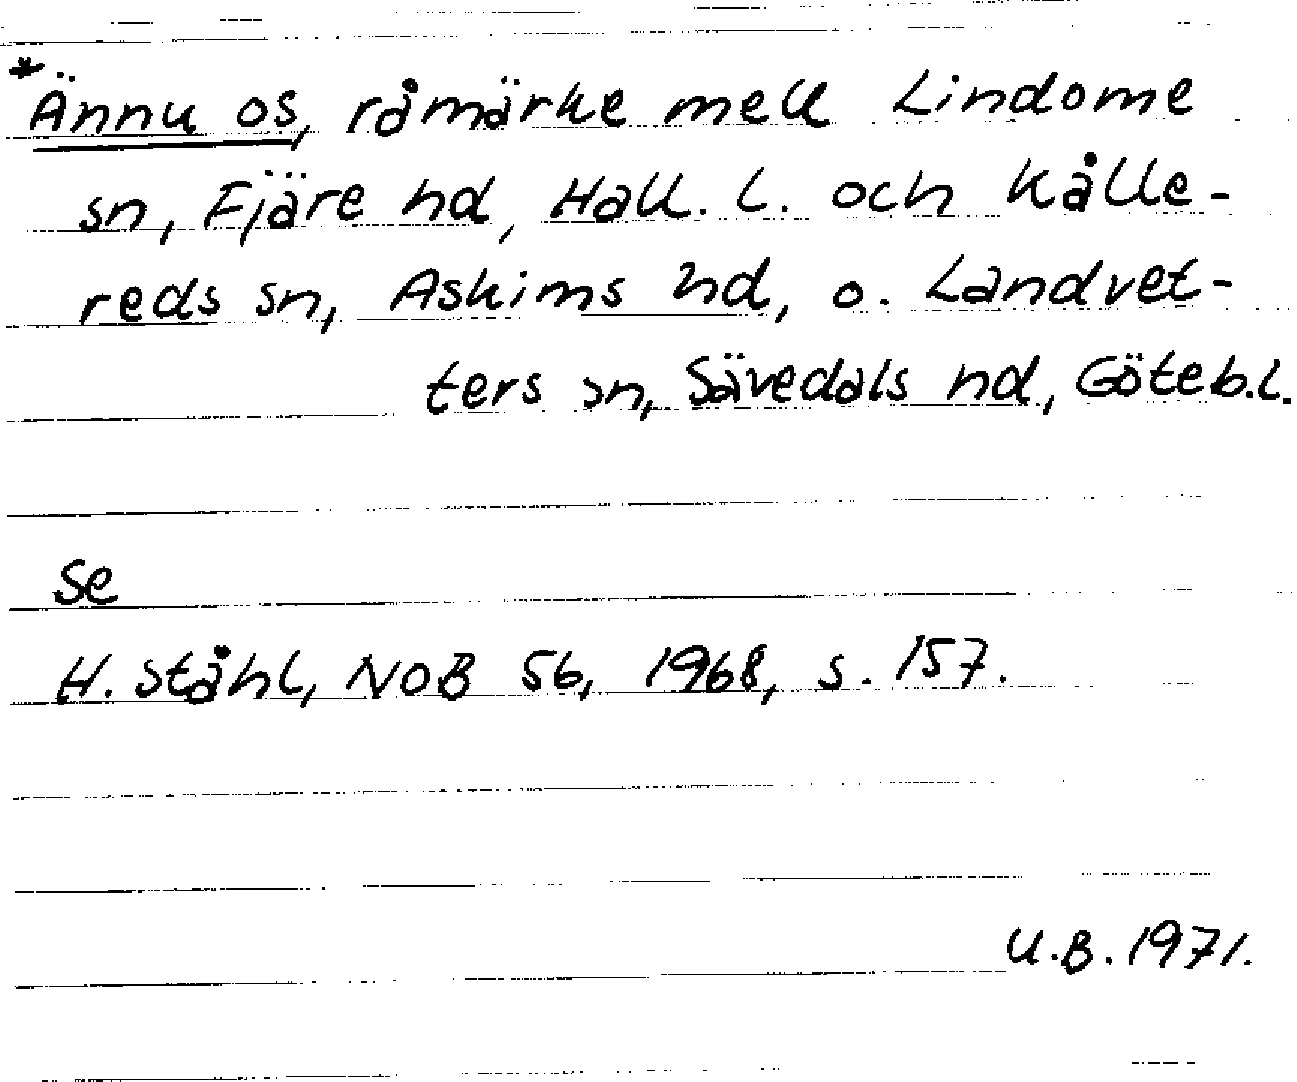 *Ännu os, råmärke mell Lindome
sn, Fjäre hd, Hall. l. och Kålle-
reds sn, Askims hd, o. Landvet-
ters sn, Sävedals hd, Göteb.l.
Se
H. Ståhl, NoB 56, 1968, s. 157.
U.B. 1971.